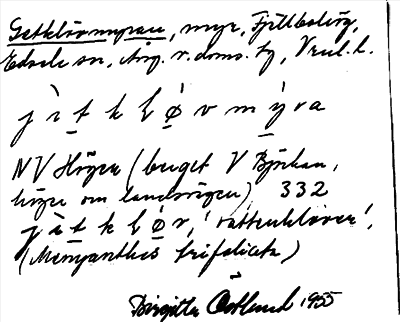 Getklövmyran, myr, Fjällboberg,
Edsele sn, Ång. v.doms. tg, Vnl. l.
j ὲ t k l ø v m y̆ r a
NV Högen (berget V Björkån,
höger om landsvägen) 332
j ὲ t k l ø v, 'vattenklöver',
(Menyanthes trifoliata)
Birgitta Östlund 1955